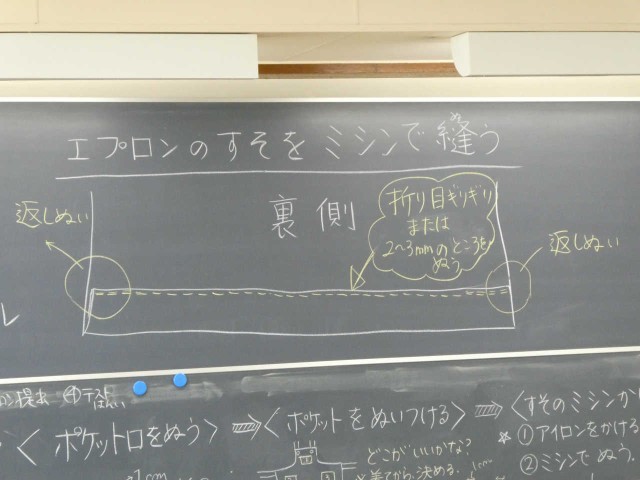 エプロンのすそをミシンで縫う
ぬ
返しぬい
裏側
折り目ギリギリ
または
2~3mmのところを
ぬう
返しぬい
レ
提出 ④
〈ポケット口をぬう〉⇒〈ポケットをぬいつける〉⇒〈すそのミシンか
どこがいいかな?
☆①アイロンをかける
着てから、決める。
②ミシンでぬう。
1cm
1cm